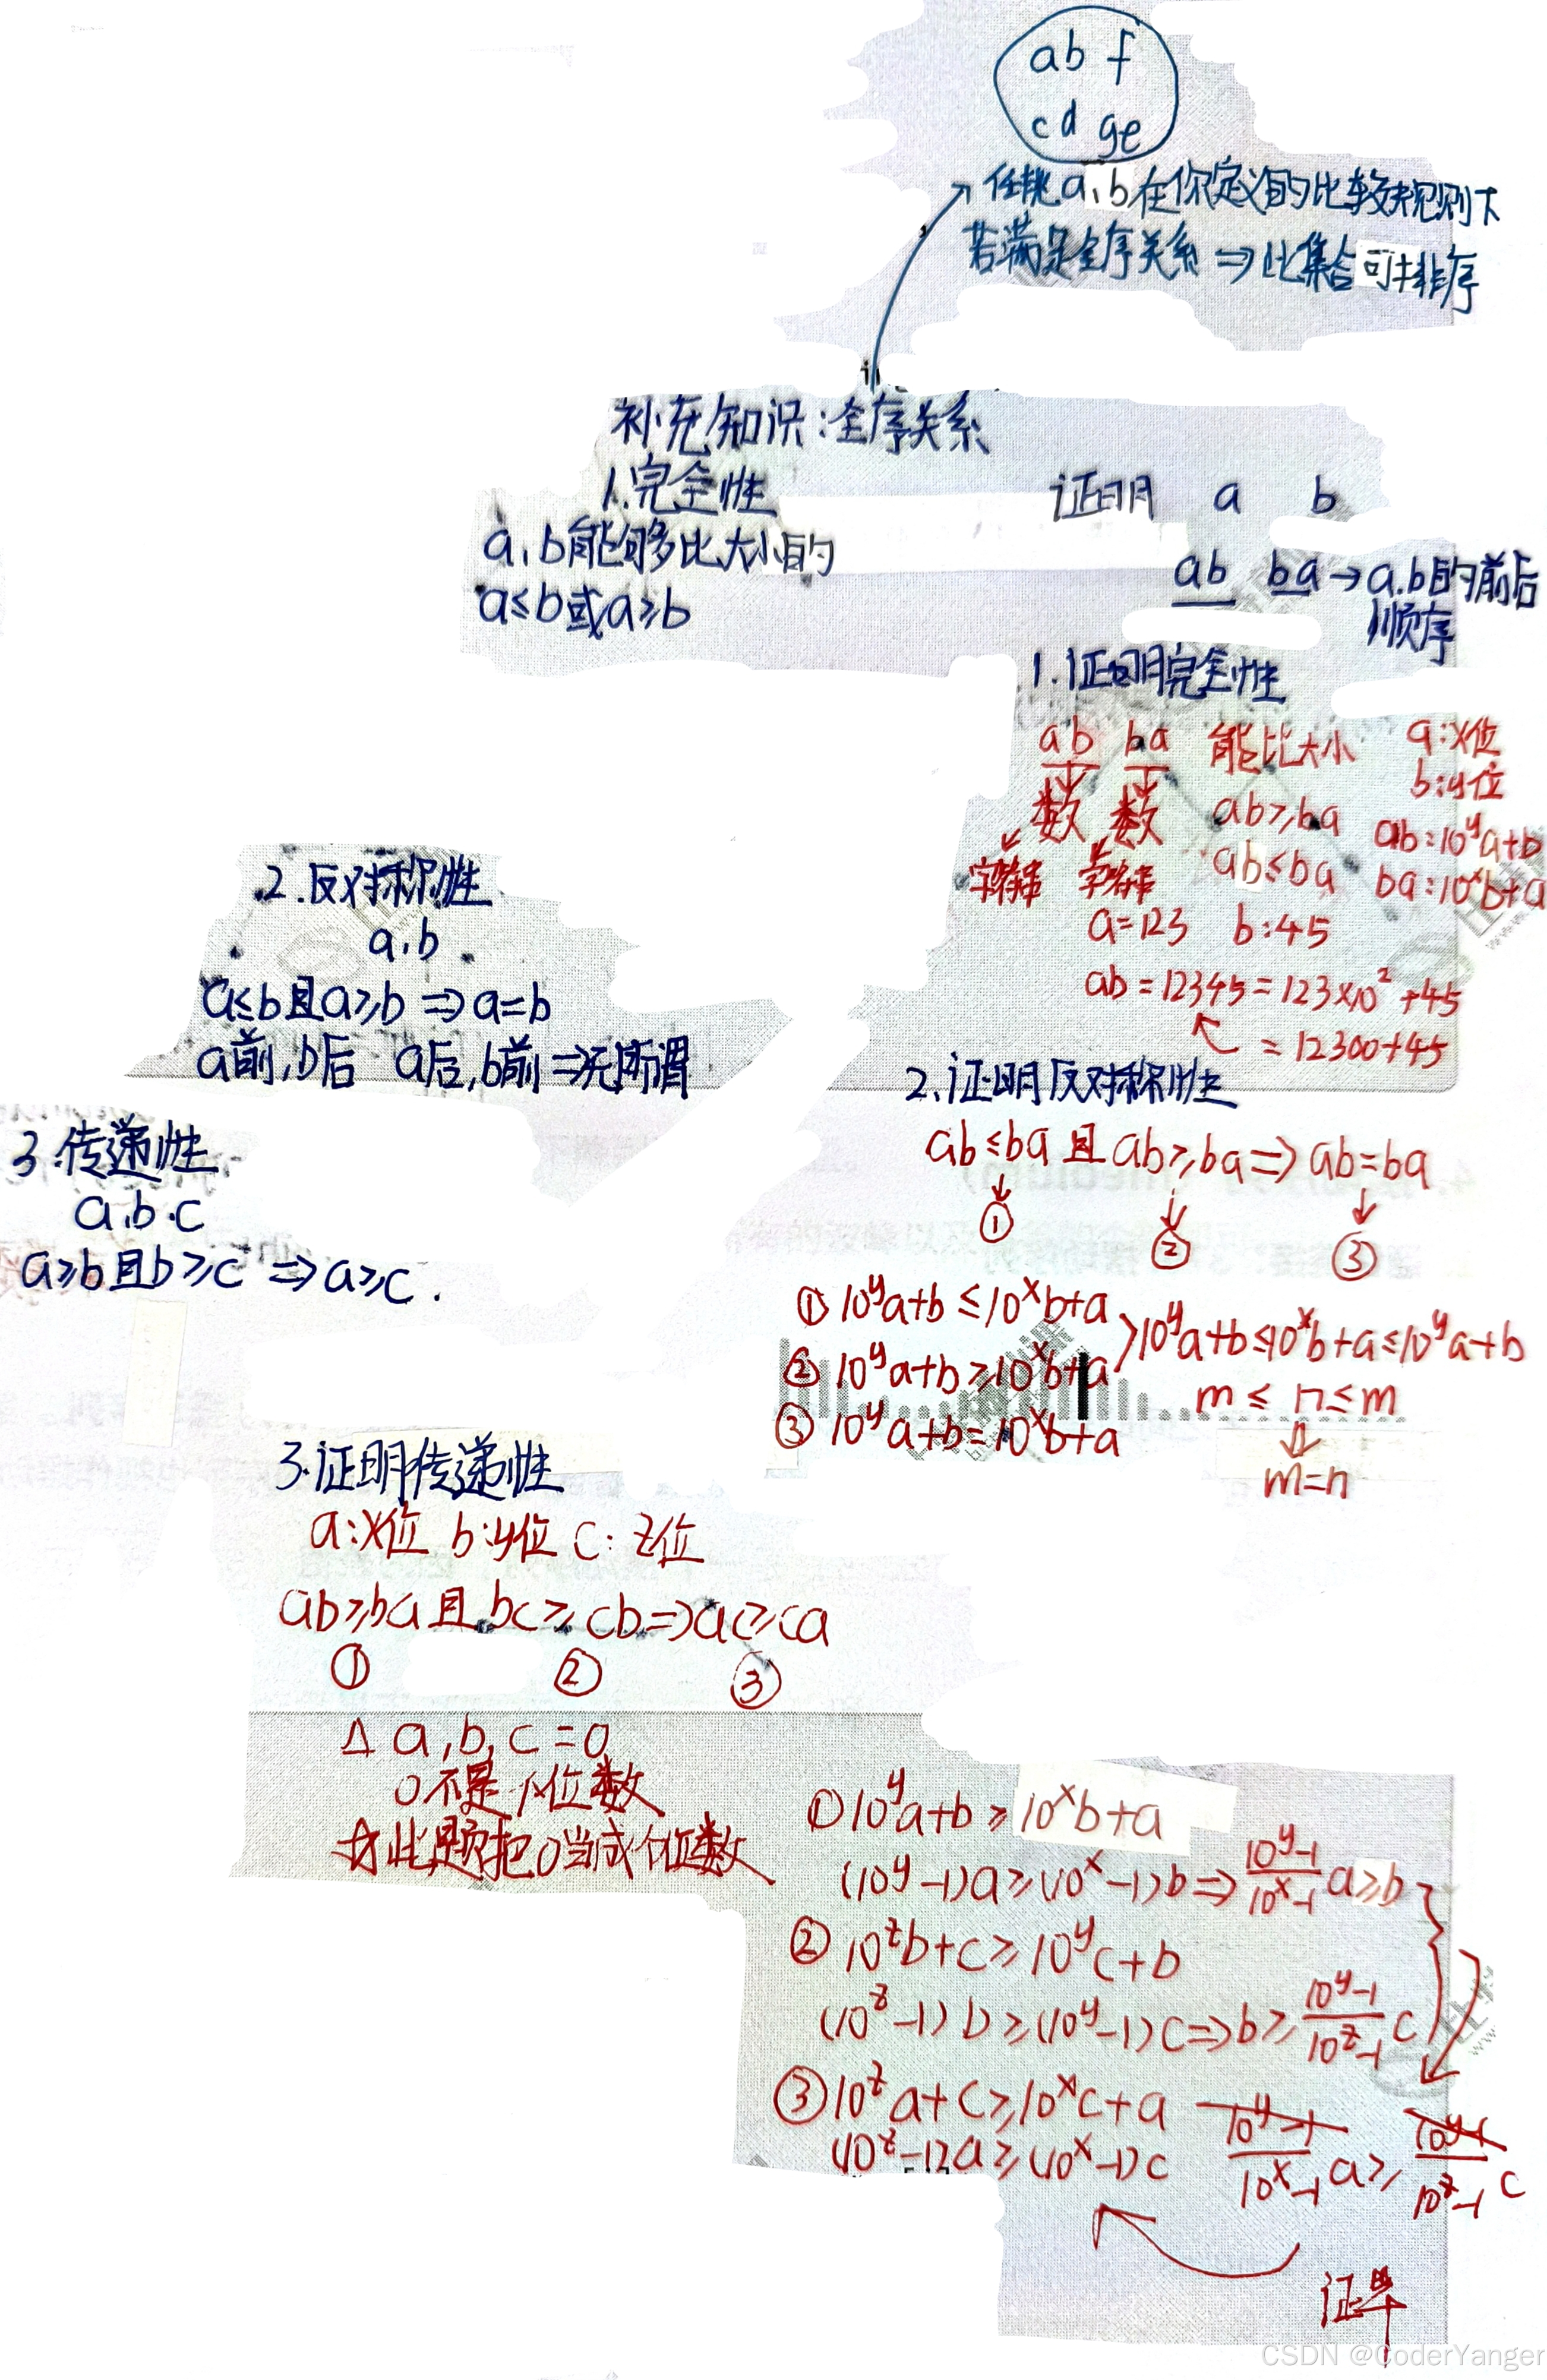 ab f
cd ge
任挑a,b在你定义的比较规则下
若满足全序关系⇒此集合可排序
补充知识:全序关系
1.完全性
a,b能够比大小的
a≤b或a≥b
证明 a b
ab ba→a.b的前后
顺序
1.证明完全性
ab ba 能比大小 a:x位
b:y位
数 数 ab≥ba ab=10^y a+b
字符串 字符串 ab≤ba ba=10^x b+a
a=123 b:45
ab=12345=123×10^2+45
=12300+45
2.反对称性
a,b
a≤b且a≥b⇒a=b
a前,b后 a后,b前⇒无所谓
2.证明反对称性
ab≤ba且ab≥ba⇒ab=ba
① ② ③
①10^y a+b≤10^x b+a
②10^y a+b≥10^x b+a
③10^y a+b=10^x b+a
10^y a+b≤10^x b+a≤10^y a+b
m≤n≤m
⇓
m=n
3.传递性
a,b.c
a≥b且b≥c⇒a≥c.
3.证明传递性
a:x位 b:y位 c:z位
ab≥ba且bc≥cb⇒ac≥ca
① ② ③
△ a,b,c=0
0不是个位数
☆此题把0当成个位数
①10^y a+b≥10^x b+a
(10^y-1)a≥(10^x-1)b⇒(10^y-1)/(10^x-1) a≥b
②10^z b+c≥10^y c+b
(10^z-1)b≥(10^y-1)c⇒b≥(10^y-1)/(10^z-1) c
③10^z a+c≥10^x c+a
(10^y-1)/(10^x-1) a≥(10^y-1)/(10^z-1) c
(10^z-1)a≥(10^x-1)c
证毕
CSDN @CoderYanger